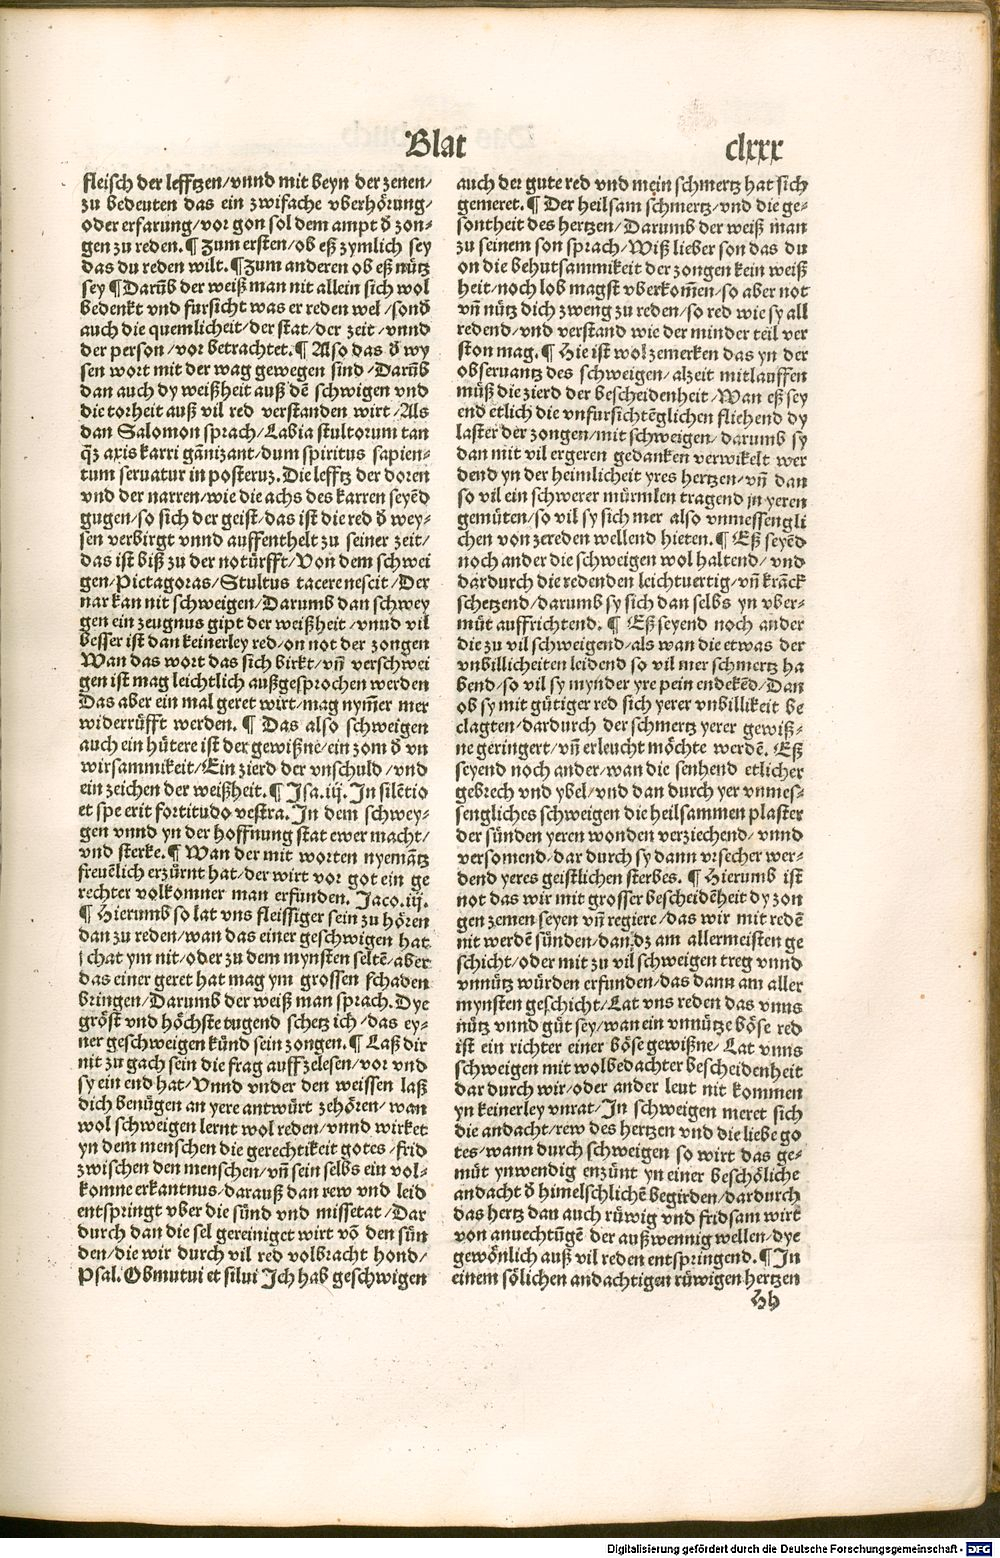 Blat clxxx
fleisch der lefftzen/vnnd mit beyn der zenen/
zu bedeuten das ein zwifache vberhörung/
oder erfarung/vor gon sol dem ampt d̄ zon-
gen zu reden.¶ Zum ersten/ob eß zymlich sey
das du reden wilt.¶Zum anderen ob eß nütz
sey ¶Darūb der weiß man nit allein sich wol
bedenkt vnd fursicht was er reden wel/sond̄
auch die quemlicheit/der stat/der zeit/vnnd
der person/vor betrachtet.¶ Also das d̄ wy
sen wort mit der wag gewegen sind/Darūb
dan auch dy weißheit auß dē schwigen vnd
die torheit auß vil red verstanden wirt/Als
dan Salomon sprach/Labia stultorum tan
qꝫ axis karri gānizant/dum spiritus sapien-
tum seruatur in posteruz.Die lefftz der doren
vnd der narren/wie die achs des karren seyēd
gugen/so sich der geist/das ist die red d̄ wey-
sen verbirgt vnnd auffenthelt zu seiner zeit/
das ist biß zu der notürfft/Von dem schwei
gen/Pictagoras/Stultus tacere nescit/Der
nar kan nit schweigen/Darumb dan schwey
gen ein zeugnus gipt der weißheit/vnnd vil
besser ist dan keinerley red/on not der zongen
Wan das wort das sich birkt/vn̄ verschwei
gen ist mag leichtlich außgesprochen werden
Das aber ein mal geret wirt/mag nym̄er mer
widerrüfft werden. ¶ Das also schweigen
auch ein hütere ist der gewißne/ein zom d̄ vn
wirsammikeit/Ein zierd der vnschuld/vnd
ein zeichen der weißheit.¶ Isa.iij. In silētio
et spe erit fortitudo vestra. In dem schwey-
gen vnnd yn der hoffnung stat ewer macht/
vnd sterke.¶ Wan der mit worten nyemātz
freuēlich erzürnt hat/der wirt vor got ein ge
rechter volkomner man erfunden. Jaco.iij.
¶ Hierumb so lat vns fleissiger sein zu hören
dan zu reden/wan das einer geschwigen hat
schat ym nit/oder zu dem mynsten seltē/aber
das einer geret hat mag ym grossen schaden
bringen/Darumb der weiß man sprach.Dye
gröst vnd höchste tugend schetz ich/das ey-
ner geschweigen künd sein zongen.¶ Laß dir
nit zu gach sein die frag auffzelesen/vor vnd
sy ein end hat/Vnnd vnder den weissen laß
dich benügen an yere antwürt zehören/wan
wol schweigen lernt wol reden/vnnd wirket
yn dem menschen die gerechtikeit gotes/frid
zwischen den menschen/vn̄ sein selbs ein vol-
komne erkantnus/darauß dan rew vnd leid
entspringt vber die sünd vnd missetat/Dar
durch dan die sel gereiniget wirt vō den sün
den/die wir durch vil red volbracht hond/
Psal.Obmutui et silui Ich hab geschwigen
auch der gute red vnd mein schmertz hat sich
gemeret.¶ Der heilsam schmertz/vnd die ge-
sontheit des hertzen/Darumb der weiß man
zu seinem son sprach/Wiß lieber son das du
on die behutsammikeit der zongen kein weiß
heit/noch lob magst vberkom̄en/so aber not
vn̄ nütz dich zweng zu reden/so red wie sy all
redend/vnd verstand wie der minder teil ver
ston mag.¶ Hie ist wol zemerken das yn der
obseruantz des schweigen/alzeit mitlauffen
müß die zierd der bescheidenheit/Wan eß sey
end etlich die vnfursichtēglichen fliehend dy
laster der zongen/mit schweigen/darumb sy
dan mit vil ergeren gedanken verwikelt wer
dend yn der heimlicheit yres hertzen/vn̄ dan
so vil ein schwerer mürmlen tragend jn yeren
gemüten/so vil sy sich mer also vnmessengli
chen von zereden wellend hieten.¶ Eß seyēd
noch ander die schweigen wol haltend/vnd
dardurch die redenden leichtuertig/vn̄ krāck
schetzend/darumb sy sich dan selbs yn vber-
müt auffrichtend. ¶ Eß seyend noch ander
die zu vil schweigend/als wan die etwas der
vnbillicheiten leidend so vil mer schmertz ha
bend/so vil sy mynder yre pein endekēd/Dan
ob sy mit gütiger red sich yerer vnbillikeit be
clagten/dardurch der schmertz yerer gewiß-
ne geringert/vn̄ erleucht möchte werdē. Eß
seyend noch ander/wan die senhend etlicher
gebrech vnd ybel/vnd dan durch yer vnmes-
sengliches schweigen die heilsammen plaster
der sünden yeren wonden verziechend/vnnd
versomend/dar durch sy dann vrsecher wer-
dend yeres geistlichen sterbes. ¶ Hierumb ist
not das wir mit grosser bescheidēheit dy zon
gen zemen seyen vn̄ regiere/das wir mit redē
nit werdē sünden/dan dz am allermeisten ge
schicht/oder mit zu vil schweigen treg vnnd
vnnütz würden erfunden/das dann am aller
mynsten geschicht/Lat vns reden das vnns
nütz vnnd güt sey/wan ein vnnütze böse red
ist ein richter einer böse gewißne/Lat vnns
schweigen mit wolbedachter bescheidenheit
dar durch wir/oder ander leut nit kommen
yn keinerley vnrat/In schweigen meret sich
die andacht/rew des hertzen vnd die liebe go
tes/wann durch schweigen so wirt das ge-
müt ynwendig enzünt yn einer beschöliche
andacht d̄ himelschlichē begirden/dardurch
das hertz dan auch rüwig vnd fridsam wirt
von anuechtūgē der außwennig wellen/dye
gewönlich auß vil reden entspringend.¶ In
einem sölichen andachtigen rüwigen hertzen
Hh
Digitalisierung gefördert durch die Deutsche Forschungsgemeinschaft - DFG